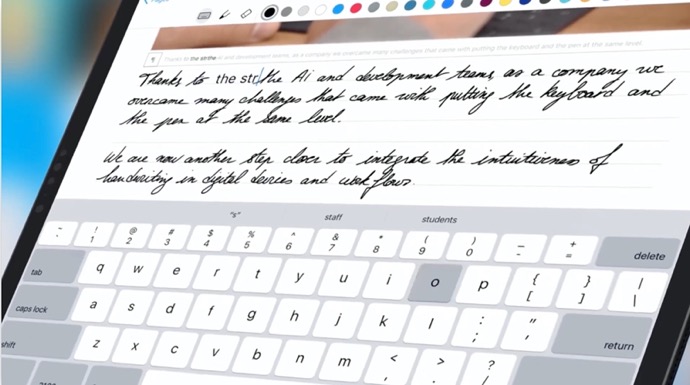 Pages
Thanks to the strthe Ai and development teams, as a company we overcame many challenges that came with putting the keyboard and the pen at the same level.
Thanks to the strthe Ai and development teams, as a company we
overcame many challenges that came with putting the keyboard and
the pen at the same level.
We are now another step closer to integrate the intuitiveness of
handwriting in digital devices and workflows.
"s" staff students
~ ! @ # $ % ^ & * ( ) _ +
` 1 2 3 4 5 6 7 8 9 0 - = delete
tab q w e r t y u i o p { [ } ] | \
caps lock a s d f g h j k l : ; " ' return
shift z x c v b n m < , > . ? /